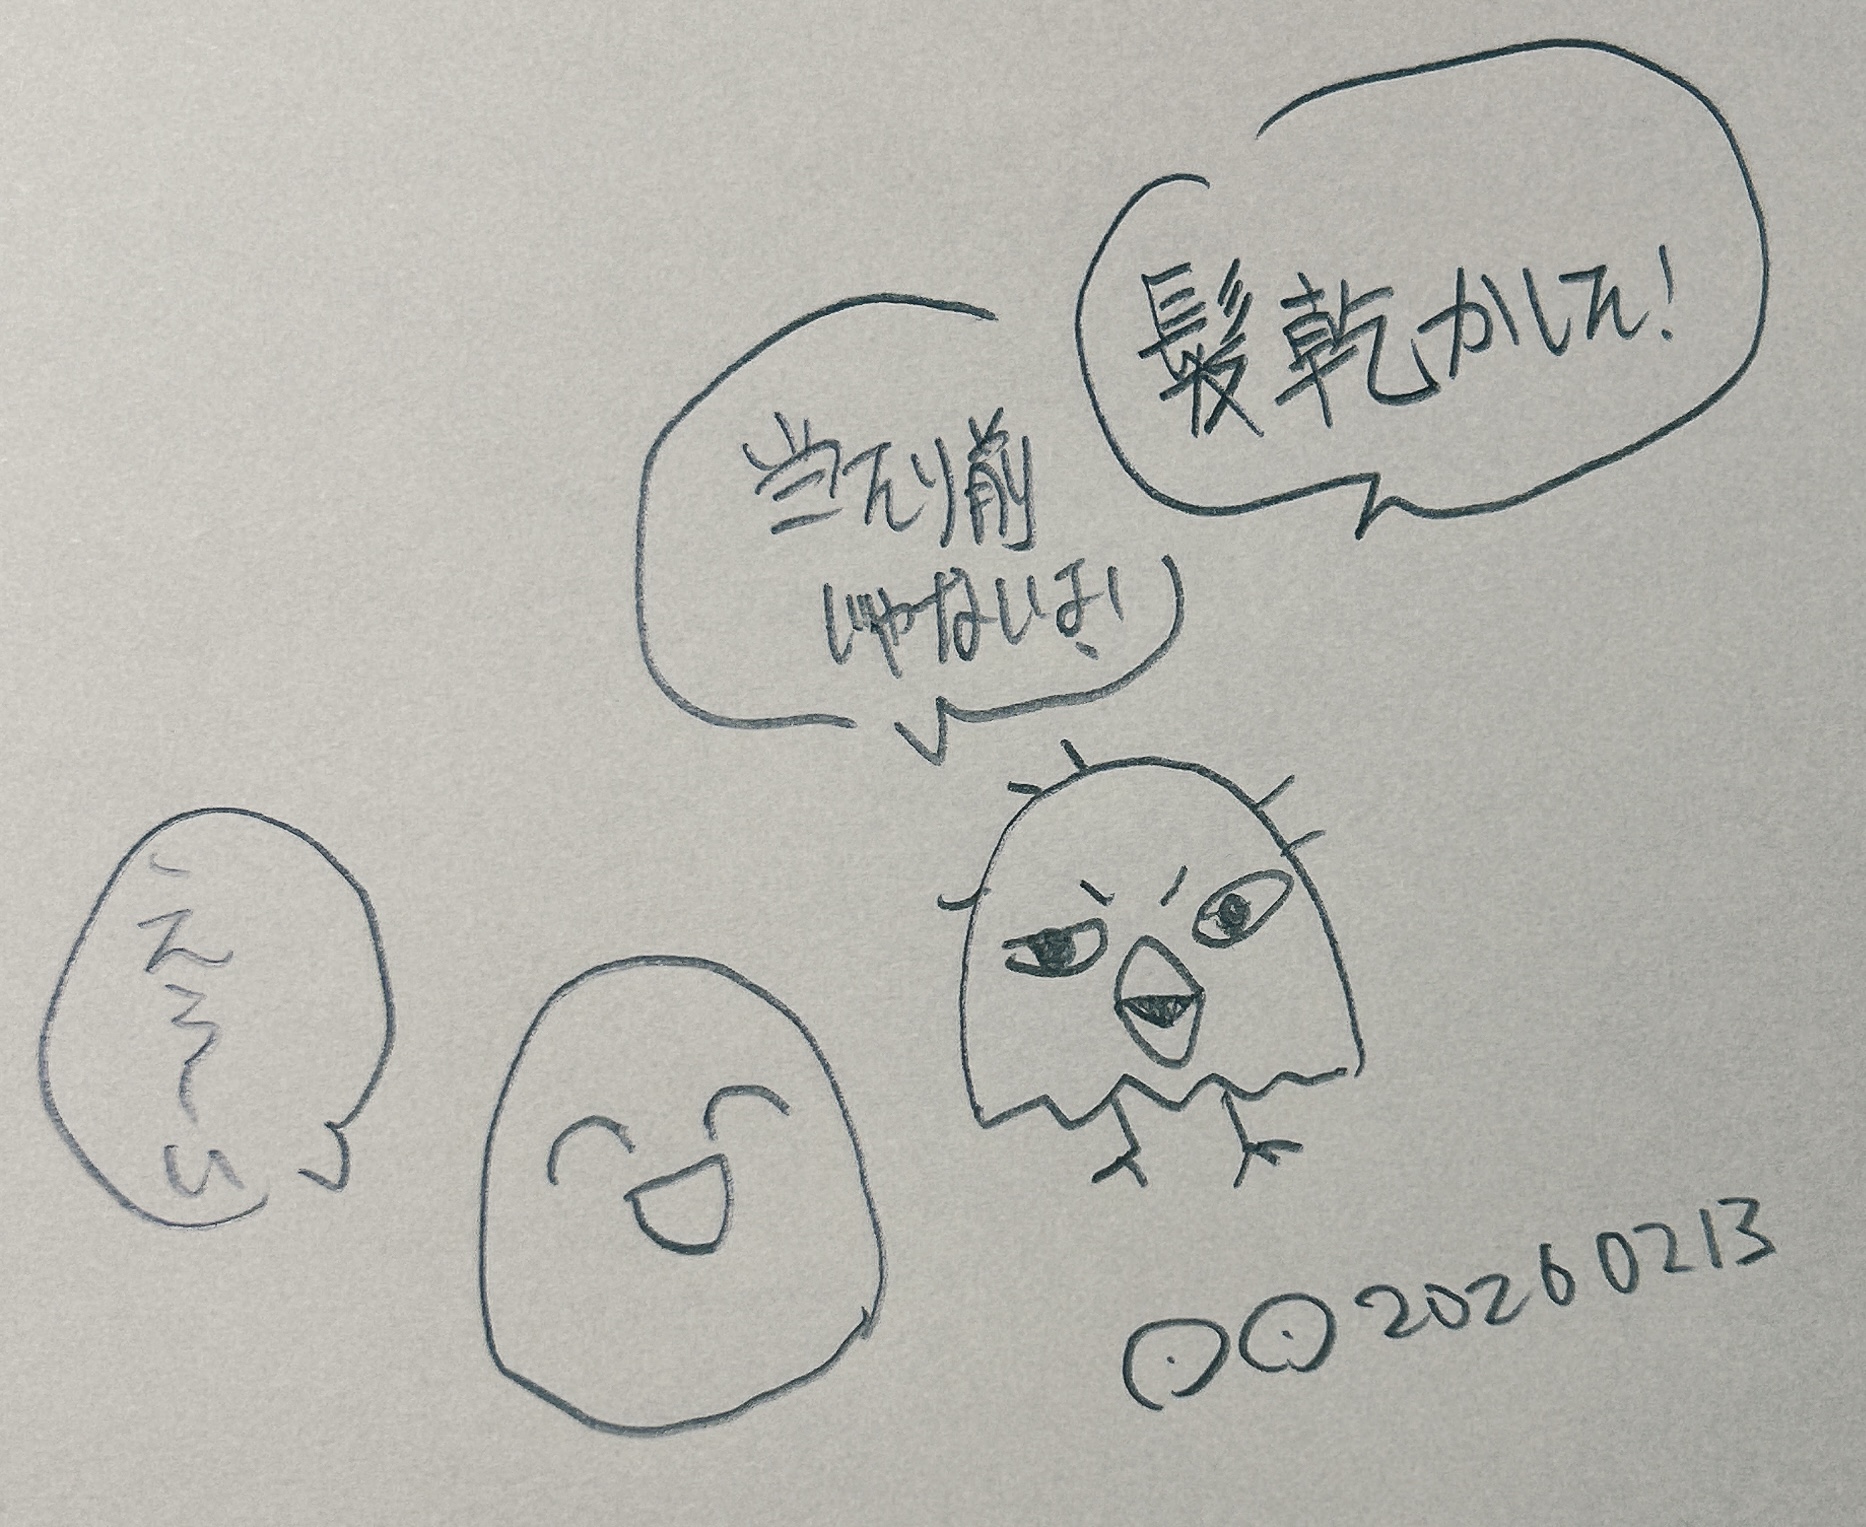 髪乾かした!
当たり前
じゃないよ!
えら〜い
20260213